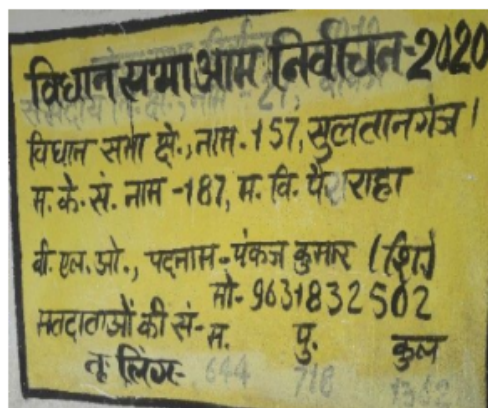 विधान सभा आम निर्वाचन-2020
विधान सभा क्षे., नाम-157, सुलतानगंज।
म. के. सं. नाम -187, म. वि. पैराहा
बी. एल. ओ., पदनाम-पंकज कुमार (शि०)
मो- 9631832502
मतदाताओं की सं- म. पु. कुल
तृ. लिंग- 644 718 1362